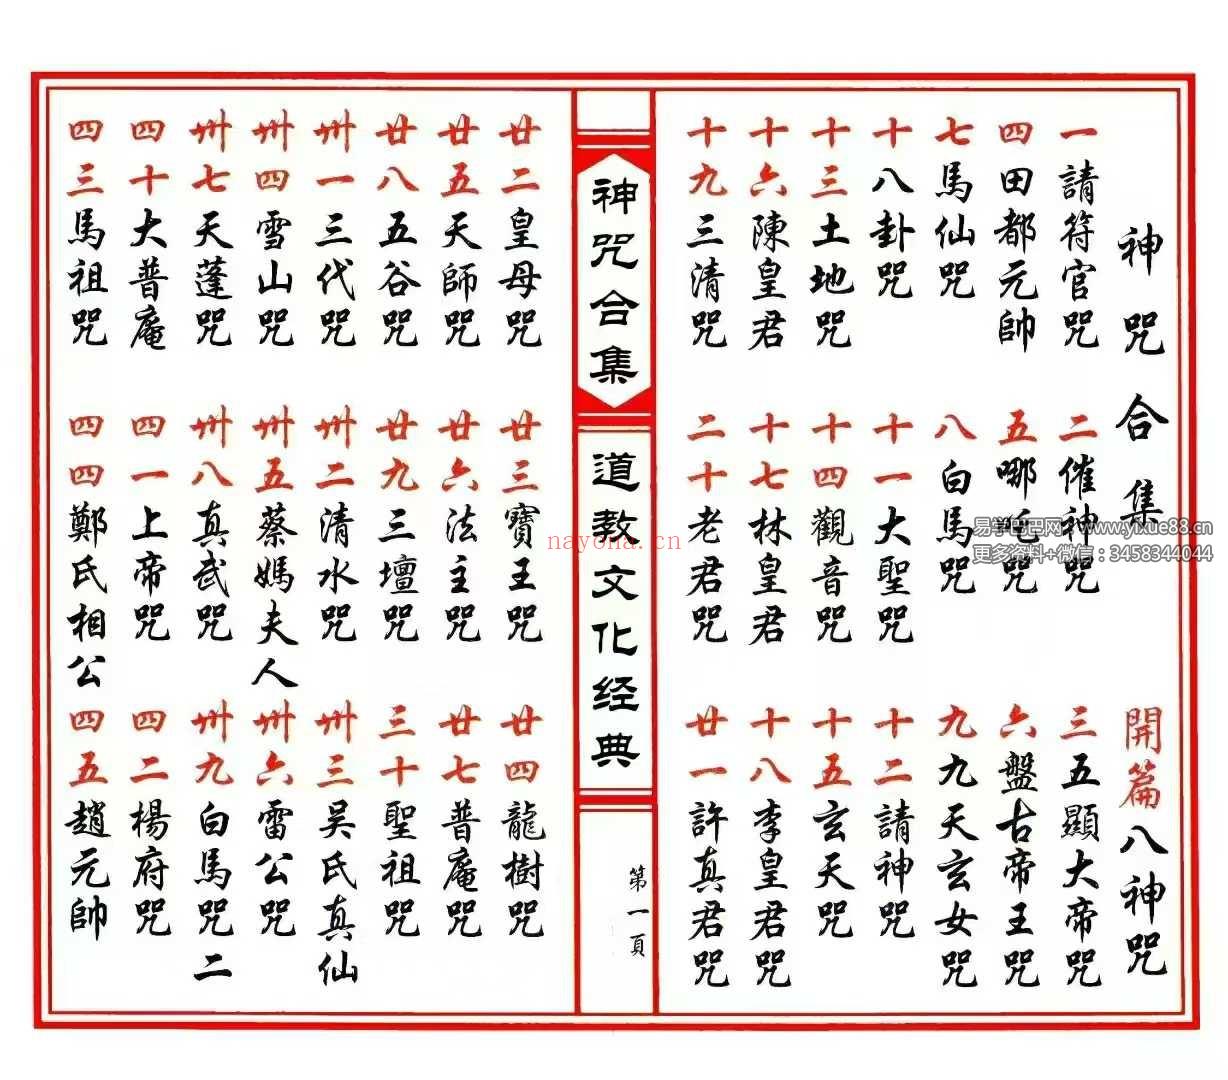 神咒合集 開篇八神咒
一請符官咒 二催神咒 三五顯大帝咒
四田都元帥 五哪吒咒 六盤古帝王咒
七馬仙咒 八白馬咒 九九天玄女咒
十八卦咒 十一大聖咒 十二請神咒
十三土地咒 十四觀音咒 十五玄天咒
十六陳皇君 十七林皇君 十八李皇君咒
十九三清咒 二十老君咒 廿一許真君咒
神咒合集
道教文化经典
第一頁
廿二皇母咒 廿三寶王咒 廿四龍樹咒
廿五天師咒 廿六法主咒 廿七普庵咒
廿八五谷咒 廿九三壇咒 三十聖祖咒
卅一三代咒 卅二清水咒 卅三吴氏真仙
卅四雪山咒 卅五蔡媽夫人 卅六雷公咒
卅七天蓬咒 卅八真武咒 卅九白馬咒二
四十大普庵 四一上帝咒 四二楊府咒
四三馬祖咒 四四鄭氏相公 四五趙元帥
易学巴巴网：www.yixue88.cn
更多资料+微信：3458344044
nayona.cn